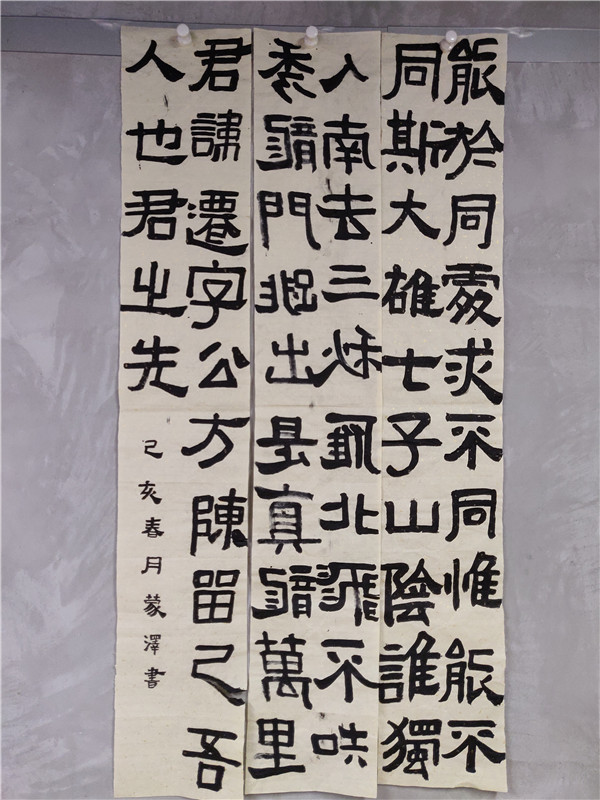 能於同處求不同惟能不
同斯大雄七子山陰誰獨
人南去三秋北飛不
秀龍門迥出是真龍萬里
君諱遷字公方陳留己吾
人也君之先
己亥春月蒙澤書